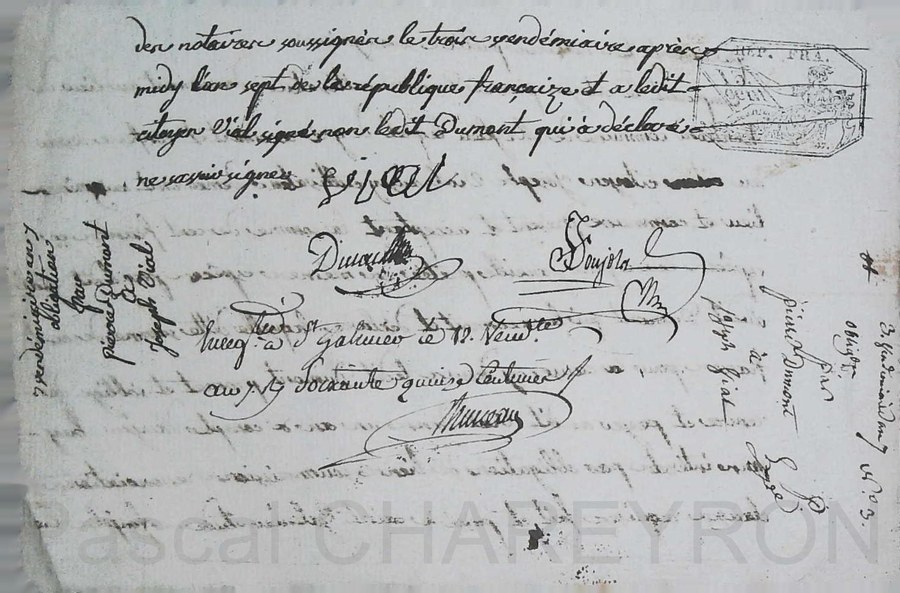 des notaires soussignés le trois vendémiaire après
midy l'an sept de la république françaize et a ledit
citoyen Vial signé non ledit Dumont qui à déclaré
ne savoir signer
Vial
REP. FRA.
à St galmier le 12. Vend.re
an 7
Soixante quinze Centimes
3 vendémiaire an 7
obligation
par
pierre Dumont
à
Joseph Vial
3. Vendémiaire an 7
par
pierre Dumont
à
Joseph Vial
n.o 3.
Pascal CHAREYRON